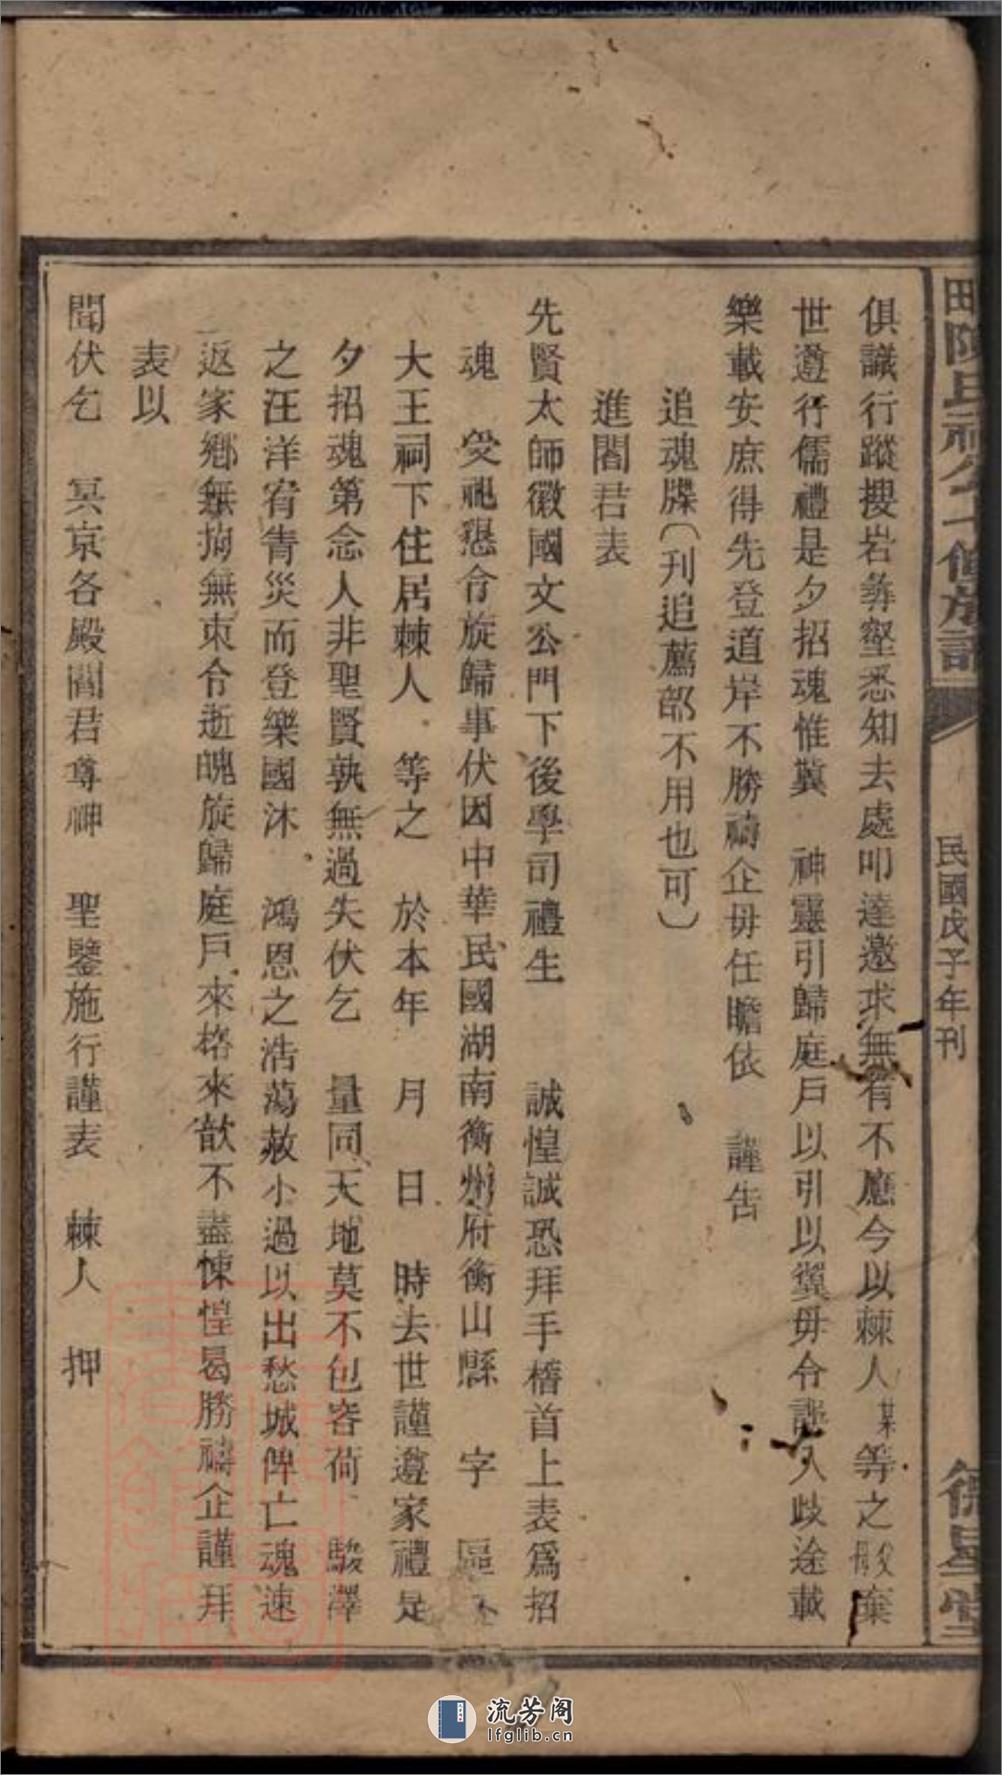 俱識行蹤搜岩彝壑悉知去處叩達邀求無有不應今以棘人某等之父母棄
世遵行儒禮是夕招魂惟冀　神靈引歸庭戶以引以翼毋令誤入歧途載
樂載安庶得先登道岸不勝禱企毋任瞻依　謹告
追魂牒（刋追薦部不用也可）
進閻君表
先賢太師徽國文公門下後學司禮生　　誠惶誠恐拜手稽首上表爲招
魂　受祀懇令旋歸事伏因中華民國湖南衡州府衡山縣　字　區
大王祠下住居棘人　等之　於本年　月　日　時去世謹遵家禮是
夕招魂第念人非聖賢孰無過失伏乞　量同天地莫不包容荷　駿澤
之汪洋宥眚災而登樂國沐　鴻恩之浩蕩赦小過以出愁城俾亡魂速
返家鄉無拘無束令逝魄旋歸庭戶來格來歆不盡悚惶曷勝禱企謹拜
表以
聞伏乞　冥京各殿閻君尊神　聖鑒施行謹表　棘人　押
陳氏初公七修族譜
民國戊子年刊
星堂
流芳阁
lfglib.cn